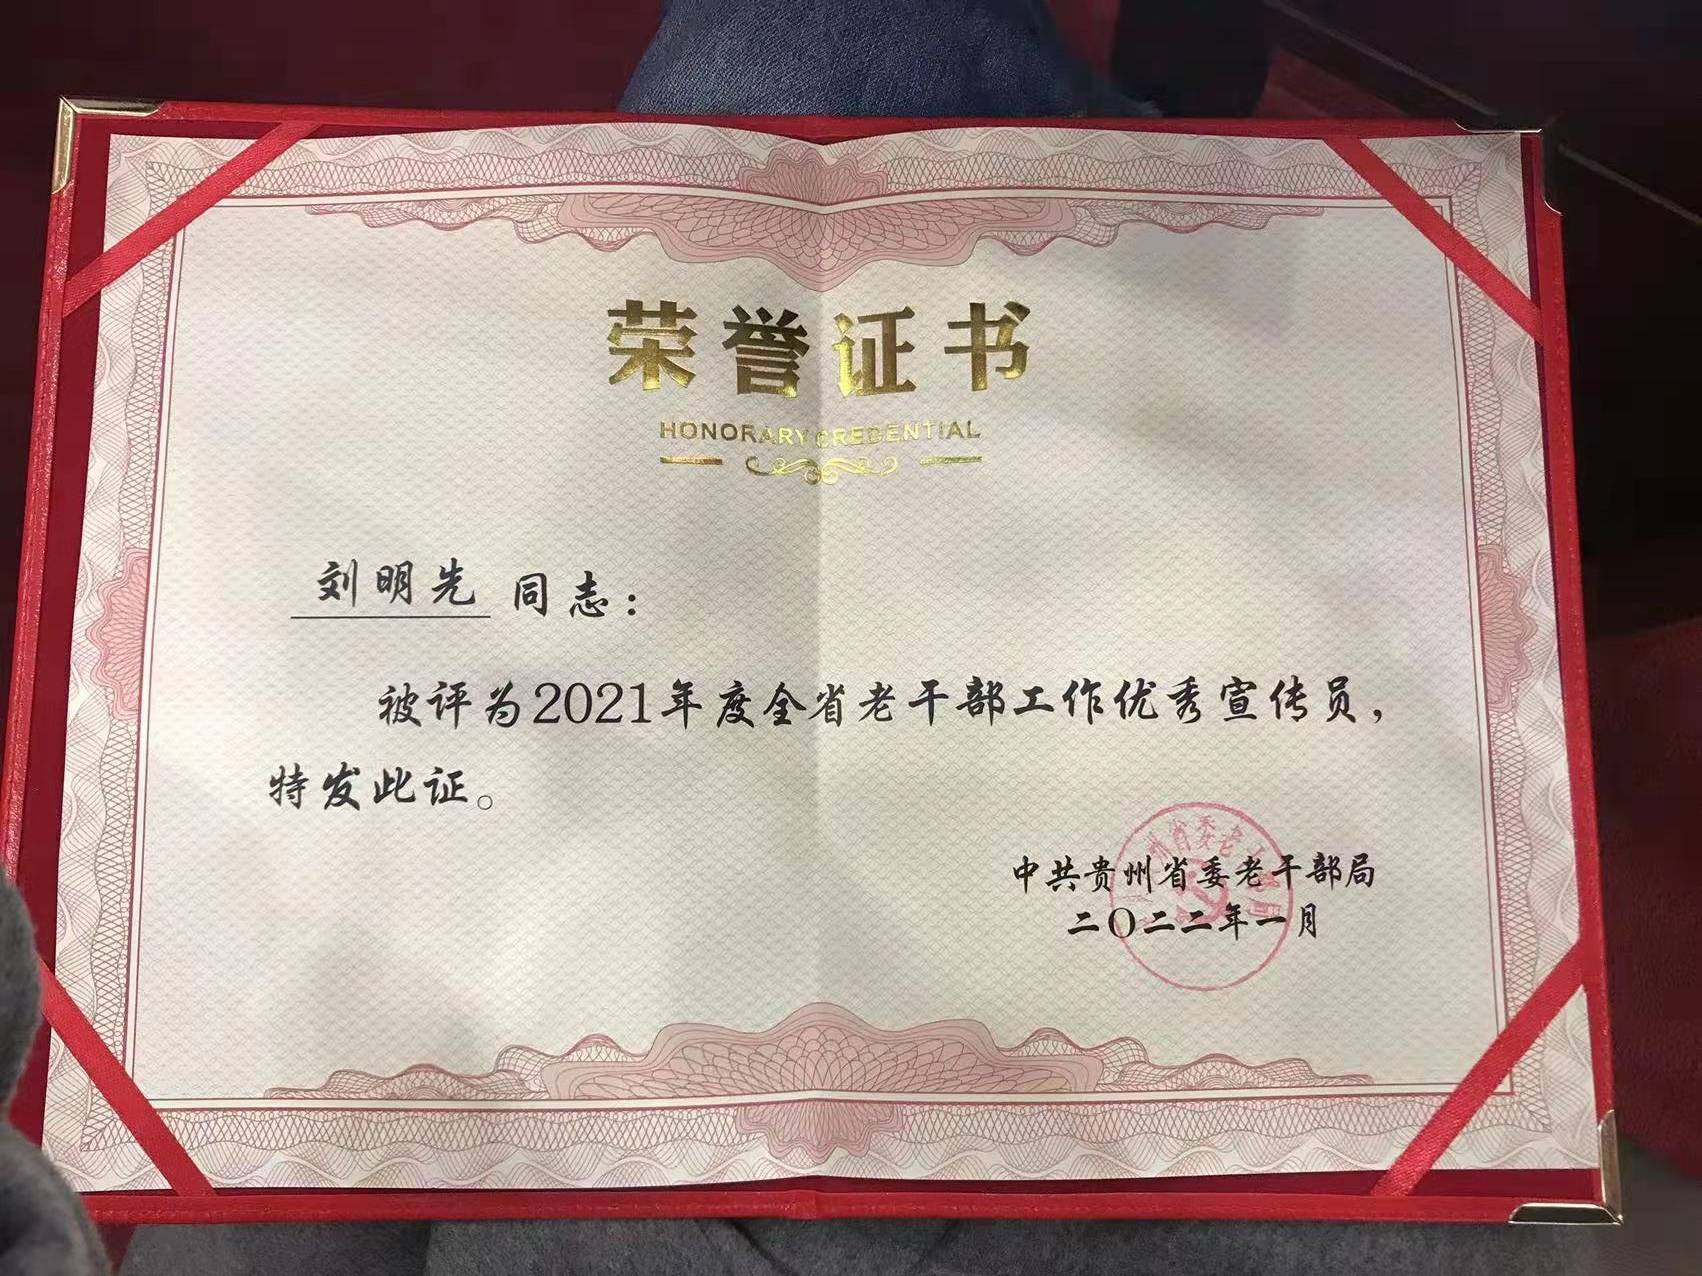 荣誉证书
HONORARY CREDENTIAL
刘明先 同志：
被评为2021年度全省老干部工作优秀宣传员，
特发此证。
中共贵州省委老干部局
二〇二二年一月